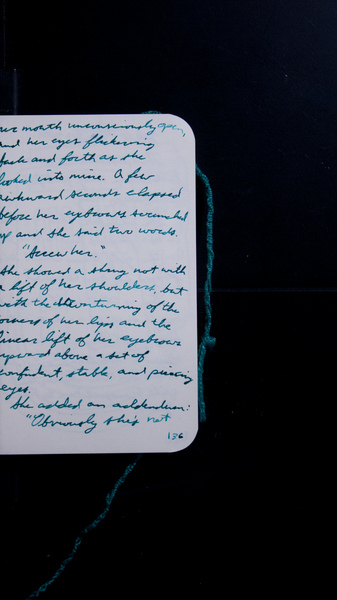 her mouth unconsciously open,
and her eyes flickering
back and forth as she
looked into mine. A few
awkward seconds elapsed
before her eyebrows scrunched
up and she said two words.
"Screw her."
She showed a shrug not with
a lift of her shoulders, but
with the downturning of the
corners of her lips and the
linear lift of her eyebrows
upward above a set of
confident, stable, and piercing
eyes.
She added an addendum:
"Obviously she's not
136